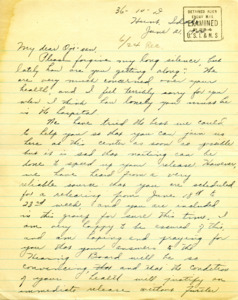 36-10-D
Hunt, Idaho
June
DETAINED ALIEN
ENEMY MAIL
EXAMINED
6/24 Rec.
My dear Oji-san,
Please forgive my long silence, but
lately how are you getting along? We
are very much concerned with your
health, and I feel terribly sorry for you
when I think how lonely you must be
in the hospital.
We have tried the best we could
to help you so that you can join us
here at this center as soon as possible
but it is sad that nothing can be
done to speed up your release. However,
we have heard from a very
reliable source that you are scheduled
for a rehearing from June 18th to
23rd week and you are included
in this group for sure this time. I
am very happy to be assured of this
and am hoping and praying for
you that your answers to the
Hearing Board will be so
convincing and that the condition
of your health will justify an
immediate release without further